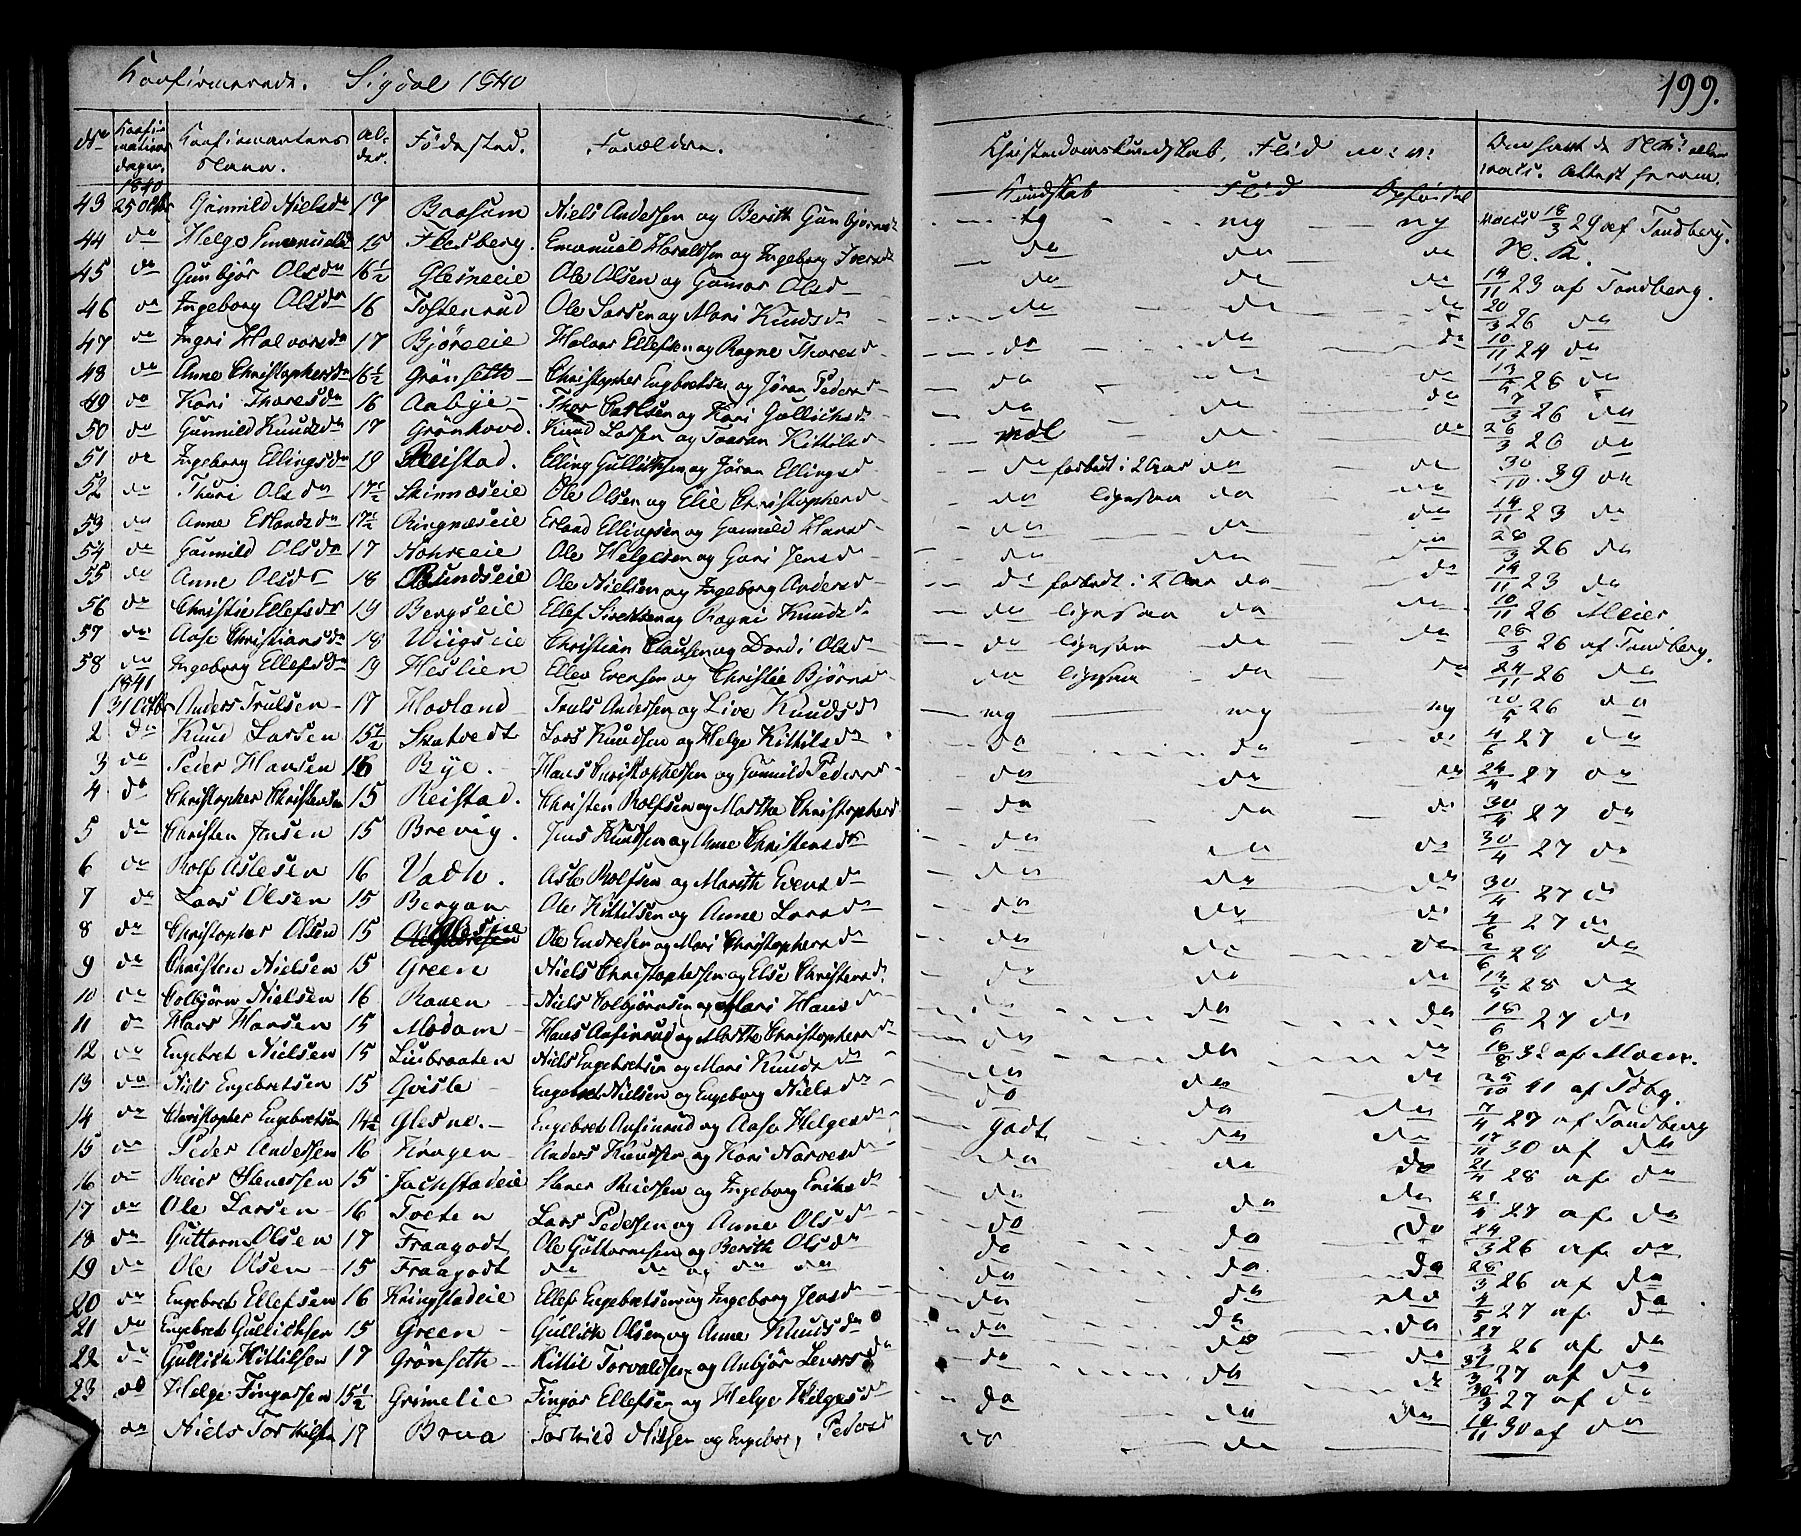 Konfirmerede. Sigdal 1840
199.
No Konfirmations dagen. Konfirmantens Navn. Alder. Födested. Forældre.
Christendomskundskab, Flid m: v:
1840 Kundskab Flid Opförsel
43 25 Octbr Gunnild Nielsdr 17 Baasum Niels Andersen og Berith Gunbjörnsd tg mg mg 18/3 29 af Tandberg.
44 do Helge Emanuelsd 15 Flesberg. Emanuel Haraldsen og Ingeborg Iversd do do do N. K.
45 do Gunbjör Olsdr 16 1/2 Glesneeie Ole Olsen og Gunor Olsd do do do 14/11 23 af Tandberg.
46 do Ingeborg Olsdr 16 Tostenrud Ole Larsen og Mari Knudsdr do do do 20/3 26 do
47 do Ingri Halvorsdr 17 Björeeie Halvor Ellefsen og Ragne Thoresd do do do 10/11 24 do
48 do Anne Christophersdr 16 1/2 Grönseth Christopher Engbretsen og Jöran Pedersd do do do 28 do
49 do Kari Thoresdr 16 Aabye Thor Carlsen og Kari Gullichsd do do do 7/3 26 do
50 do Gunnild Knudsdr 17 Grönhovd. Knud Larsen og Taaran Kittilsd mdl do do 26/3 26 do
51 do Ingeborg Ellingsdr 19 Reistad. Elling Gullichsen og Jöran Ellingsd do forbedt i 2 Aar do do 30/10 39 do
52 do Thuri Olsdr 17 1/2 Skinnæseie Ole Olsen og Elie Christophersd do ligesaa do do 14/11 23 do
53 do Anne Erlandsdr 17 1/2 Ringnæseie Erland Ellingsen og Gunnild Hansd do do do 28/3 26 do
54 do Gunnild Olsdr 17 Ole Helgesen og Guri Jensd do do do 14/11 23 do
55 do Anne Olsdr 18 Ole Nielsen og Ingeborg Andersd do forbedt i 2 Aar do do 10/11 26 Meier.
56 do Christie Ellefsdr 19 Bergseie Ellef Sivertsen og Ragni Knudsd do ligesaa do do 28/3 26 af Tandberg.
57 do Aase Christiansdr 18 Wiigseie Christian Clausen og Dordi Olsd do ligesaa do do 24/11 26 do
58 do Ingeborg Ellefsdr 19 Heslien Ellev Evensen og Christie Björnsd do ligesaa do do
1841
1 31 Octbr Anders Trulsen 17 Hovland Truls Andersen og Live Knudsd mg mg mg 20/5 26 do
2 do Knud Larsen 15 1/2 Skatvedt Lars Knudsen og Helge Kittilsdr do do do 4/6 27 do
3 do Peder Hansen 16 Bye. Hans Christophersen og Gunnild Pedersd do do do 24/4 27 do
4 do Christopher Christensen 15 Reistad. Christen Rolfsen og Marthe Christophersd do do do 30/4 27 do
5 do Christen Jensen 15 Brevig. Jens Knudsen og Anne Christensdr do do do 30/4 27 do
6 do Rolf Aslesen 16 Vadh. Asle Rolfsen og Marith Evensdr do do do 30/4 27 do
7 do Lars Olsen 15 Bergan Ole Kittilsen og Anne Larsdr do do do 4/6 27 do
8 do Christopher Olsen 15 Ole Endresen og Mari Christophersdr do do do 2/6 28 do
9 do Christen Nielsen 15 Green Niels Christophersen og Else Christensd do do do 28 do
10 do Colbjörn Nielsen 16 Raaen Niels Colbjörnsen og Mari Hansd do do do 18/6 27 do
11 do Hans Hansen 15 Modam Hans Anfinrud og Marthe Christophersdr do do do 16/8 af Moen.
12 do Engebret Nielsen 15 Lusbraaten Niels Engebretsen og Mari Knudsdr do do do
13 do Niels Engebretsen 15 Qvisle Engebret Nielsen og Engeborg Nielsdr do do do
14 do Christopher Engebretsen 14 1/2 Glesne. Engebret Anfinrud og Aase Helgesd godt do do 7/4 27 af Tandberg
15 do Peder Andersen 16 Kragen Anders Knudsen og Kari Narvesd do do do 17/11 30 af do
16 do Reier Stenersen 15 Jochstadeie Stener Reiersen og Ingeborg Eriksd do do do 21/4 28 af do
17 do Ole Larsen 16 Toeten Lars Pedersen og Anne Olsd do do do 27 af do
18 do Guttorm Olsen 17 Fraagodt Ole Guttormsen og Berith Olsdr do do do 24/3 26 af do
19 do Ole Olsen 15 Fraagodt do do og do do do do do 28/3 26 af do
20 do Engebret Ellefsen 16 Kringstadeie Ellef Engebretsen og Ingeborg Jensd do do do 4/5 27 af do
21 do Engebret Gullichsen 15 Green Gullich Olsen og Anne Knudsdr do do do 27/3 26 af do
22 do Gullich Kittilsen 17 Grönseth Kittil Torvaldsen og Anbjör Larsd do do do 31/3 27 af do
23 do Helge Fingarsen 15 1/2 Grimelie Fingar Ellefsen og Helge Helgesdr do do do 30/3 27 af do
do Niels Torkilsen 17 Brua Torkild Nilsen og Engeborg Pedersd do do 30 af do